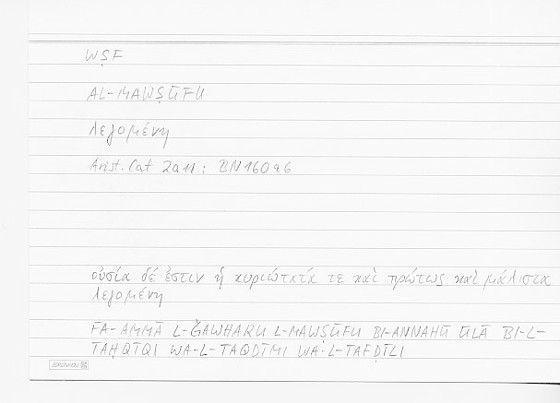 WṢF
AL-MAWṢŪFU
λεγομένη
Arist. Cat 2a11 : BN160a6
οὐσία δέ ἐστιν ἡ κυριώτατά τε καὶ πρώτως καὶ μάλιστα
λεγομένη
FA-AMMĀ L-ǦAWHARU L-MAWṢŪFU BI-ANNAHŪ ŪLĀ BI-L-
TAḤQĪQI WA-L-TAQDĪMI WA-L-TAFḌĪLI